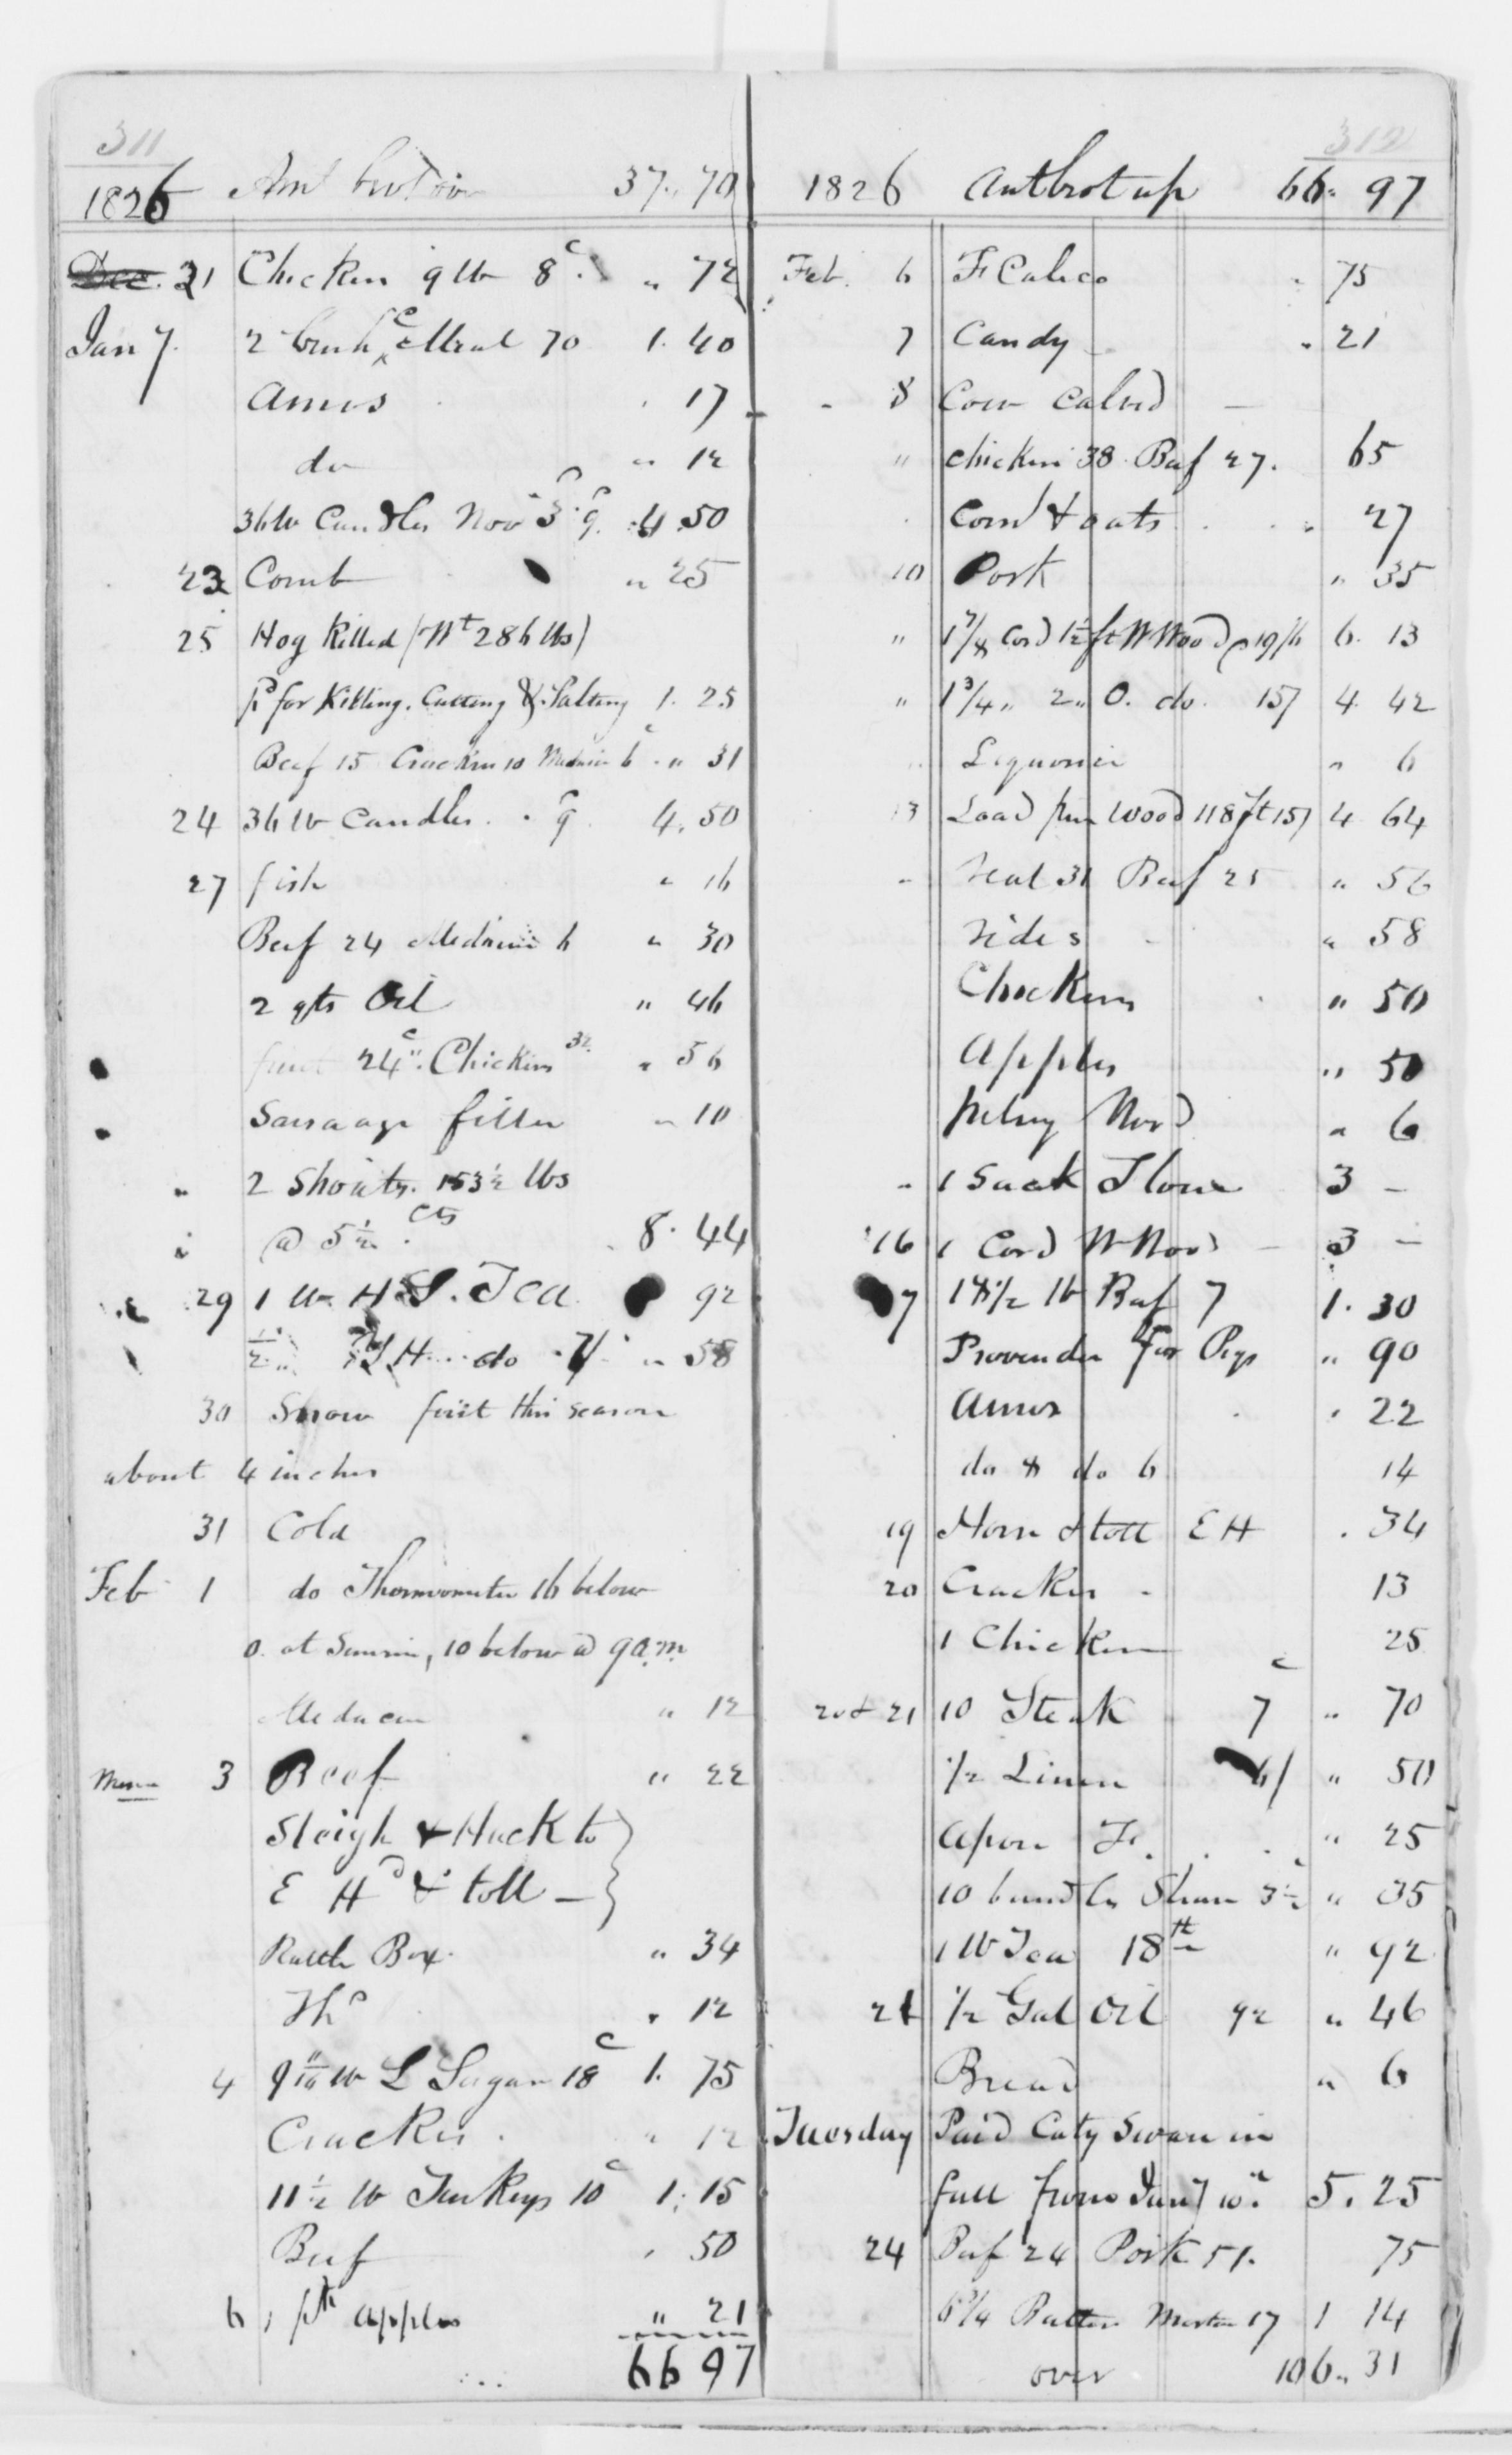 311
1826 Amt brot over 37.. 70
21 Chicken 9 lb 8c. " 72
Jan 7. 2 bush C Meal 70 1. 40
Amos . 17
do " 12
36 lb Candles Nov 3 9. 4.50
23 Comb " 25
25 Hog Killed (Wt 286 lbs)
pd for Killing, Cutting & Salting 1. 25
Beef 15 Crackers 10 Medicin 6c. " 31
24 36 lb Candles . 9 4.50
27 fish " 16
Beef 24 Medicin 6 " 30
2 qts Oil " 46
24c. Chicken 32 " 56
Sausage filler " 10
" 2 Shoats. 153½ lbs
@ 5½ cts. 8. 44
29 1 lb H.S. Tea 92
½ " H do 7/ " 58
30 Snow first this season
about 4 inches
31 Cold
Feb 1 do Thermometer 16 below
0. at Sunrise, 10 below @ 9 a.m.
Medicin " 12
3 Beef " 22
Sleigh & Hack to
E Hd & toll —
Rattle Box. " 34
Thd . 12
4 lb L Sugar 18c 1. 75
Crackers. " 12
11½ lb Turkeys 10c 1. 15
Beef . 50
6 1 pk apples " 21
66 97
312
1826 Amt brot up 66. 97
Feb. 6 F Calico " 75
7 Candy " 21
" 8 Cow Calved —
" Chicken 38 Beef 27. 65
Corn & oats " 27
10 Pork " 35
" 1 7/8 Cord 1½ ft W Wood @ 19/6 6. 13
" 1 3/4 " 2 " O. do. 15/ 4. 42
Liquorice " 6
13 Load pine wood 118 ft 15/ 4 64
" Veal 31 Beef 25 " 56
" 58
Chickens " 50
Apples " 50
" 6
" 1 Sack Flour 3 –
16 1 Cord W Wood — 3 –
17 18½ lb Beef 7 1. 30
Provender for Pigs " 90
Amos . 22
do 8 do 6 14
19 Horse & toll E H . 34
20 Crackers - 13
1 Chicken 25
20 & 21 10 Steak 7c " 70
½ Linen 6/ " 50
Apron F. " 25
10 bundles Straw 3½ " 35
1 lb Tea 18th " 92
21 ½ Gal Oil 92 " 46
Bread " 6
Tuesday Paid Caty Swan in
full from Jany 10. 5. 25
24 Beef 24 Pork 51. 75
6 3/4 Butter 17 1 14
over 106.. 31